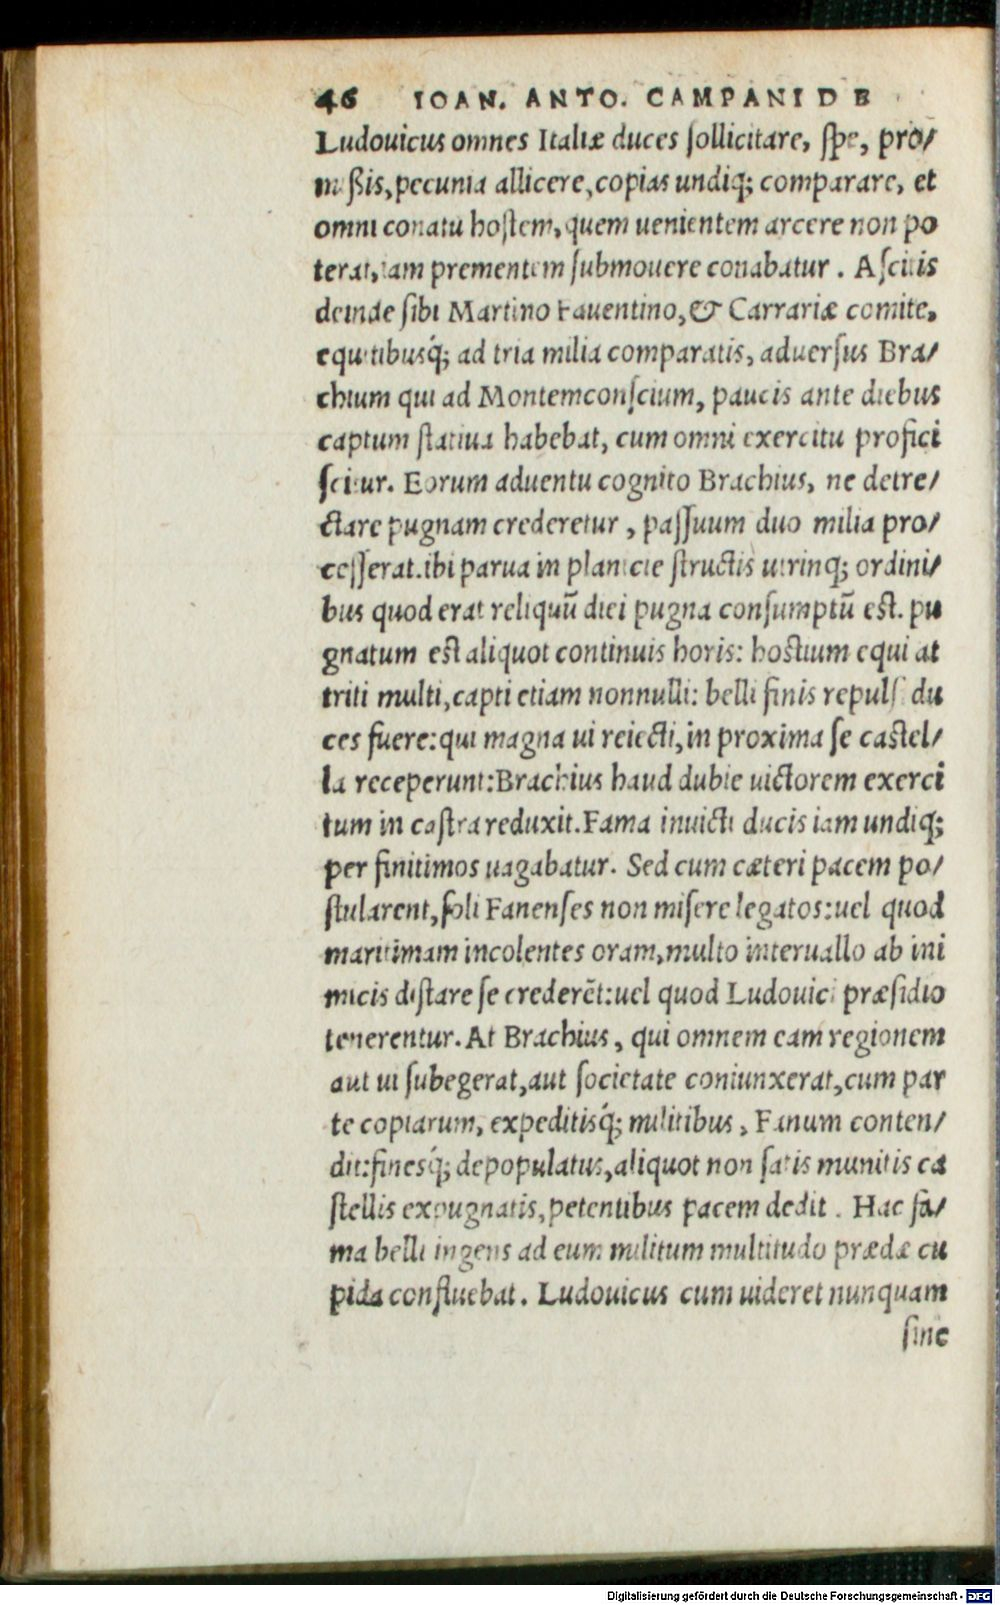 46 IOAN. ANTO. CAMPANI DE
Ludouicus omnes Italiæ duces ſollicitare, ſpe, pro/
mißis, pecunia allicere, copias undiq; comparare, et
omni conatu hoſtem, quem uenientem arcere non po
terat, iam prementem ſubmouere conabatur. Aſcitis
deinde ſibi Martino Fauentino, & Carrariæ comite,
equitibusq́; ad tria milia comparatis, aduerſus Bra/
chium qui ad Montemconſcium, paucis ante diebus
captum ſtatiua habebat, cum omni exercitu profici
ſcitur. Eorum aduentu cognito Brachius, ne detre/
ctare pugnam crederetur, paſſuum duo milia pro/
ceſſerat. ibi parua in planicie ſtructis utrinq; ordini/
bus quod erat reliquũ diei pugna conſumptũ eſt. pu
gnatum eſt aliquot continuis horis: hoſtium equi at
triti multi, capti etiam nonnulli: belli finis repulſi du
ces fuere: qui magna ui reiecti, in proxima ſe caſtel/
la receperunt: Brachius haud dubie uictorem exerci
tum in caſtra reduxit. Fama inuicti ducis iam undiq;
per finitimos uagabatur. Sed cum cæteri pacem po/
ſtularent, ſoli Fanenſes non miſere legatos: uel quod
maritimam incolentes oram, multo interuallo ab ini
micis diſtare ſe crederẽt: uel quod Ludouici præſidio
tenerentur. At Brachius, qui omnem eam regionem
aut ui ſubegerat, aut ſocietate coniunxerat, cum par
te copiarum, expeditisq́; militibus, Fanum conten/
dit: finesq́; depopulatus, aliquot non ſatis munitis ca
ſtellis expugnatis, petentibus pacem dedit. Hac fa/
ma belli ingens ad eum militum multitudo prædæ cu
pida confluebat. Ludouicus cum uideret nunquam
ſine
Digitalisierung gefördert durch die Deutsche Forschungsgemeinschaft - DFG